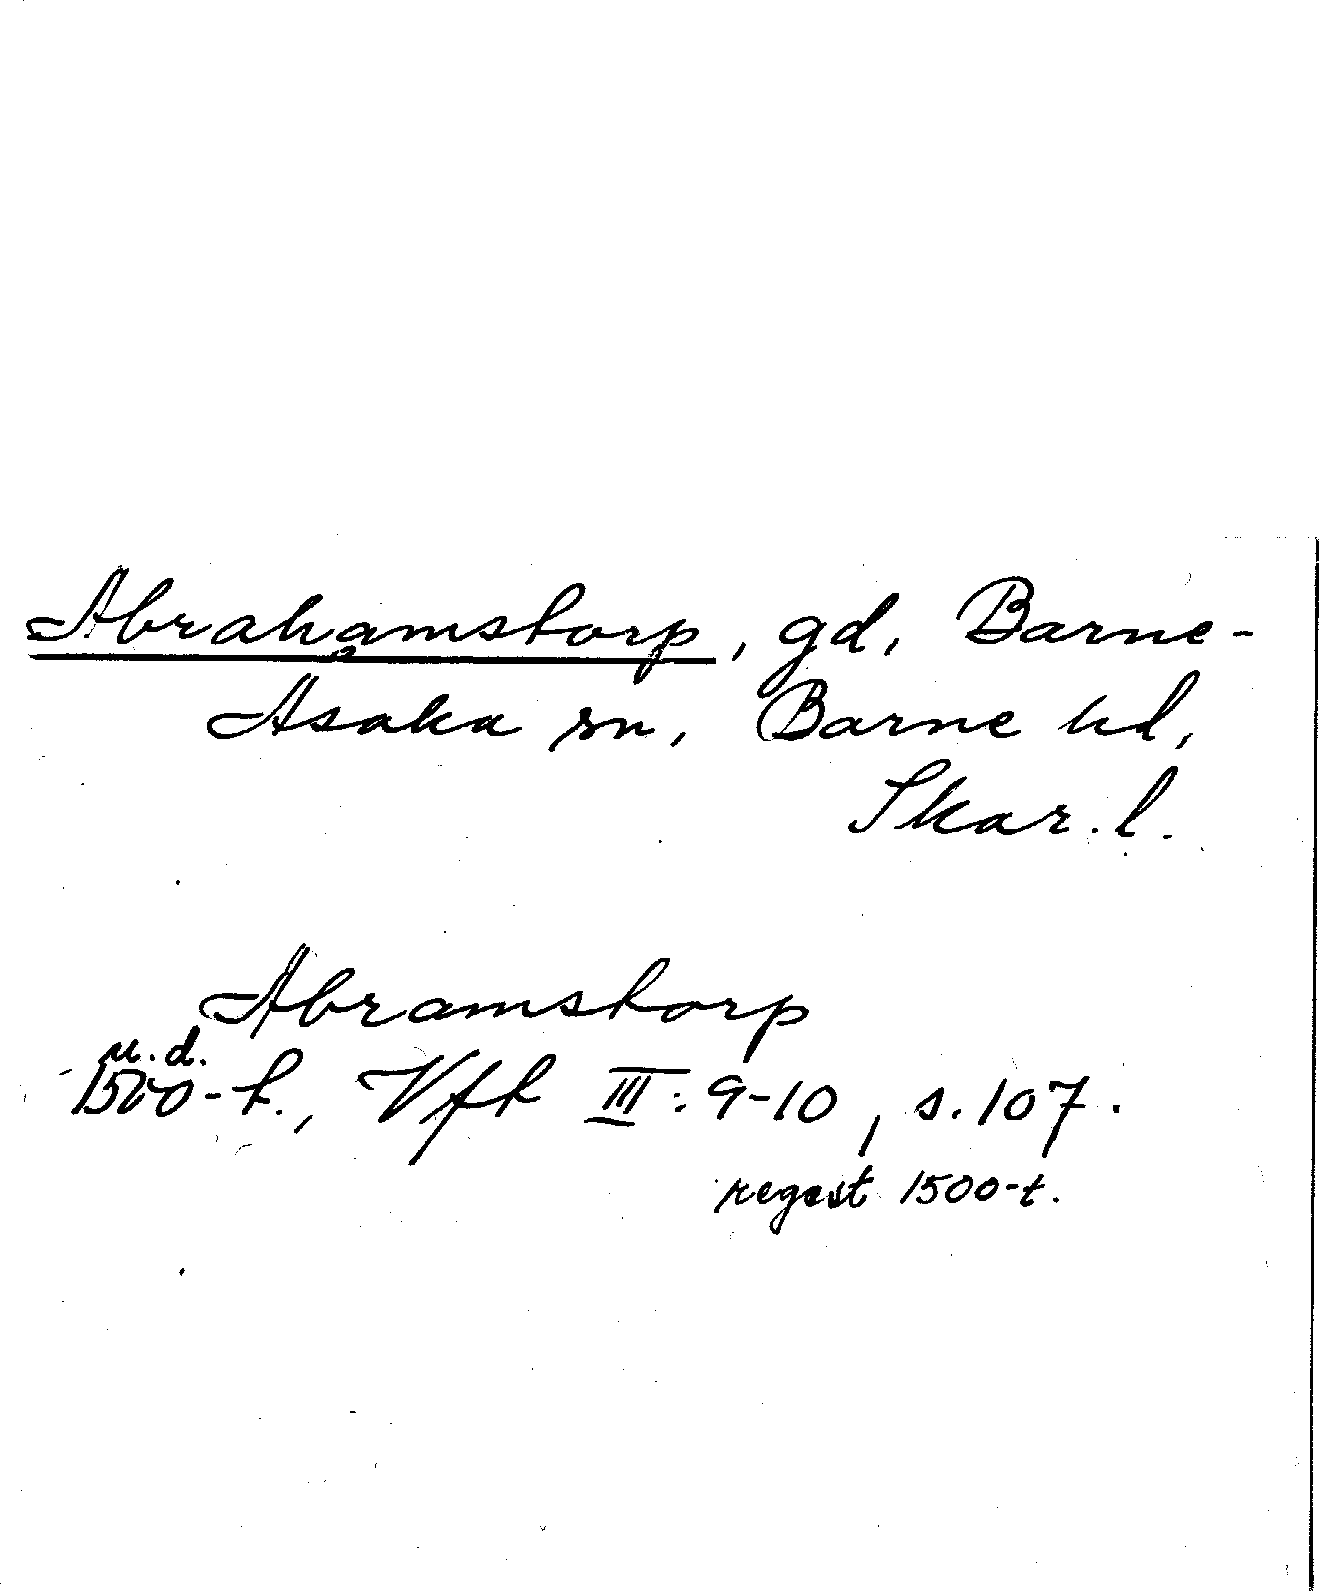 Abrahamstorp, gd, Barne-
Asaka sn, Barne hd,
Skar. l.
Abramstorp
u.d.
1500-t., Vft III: 9-10, s. 107.
regest 1500-t.